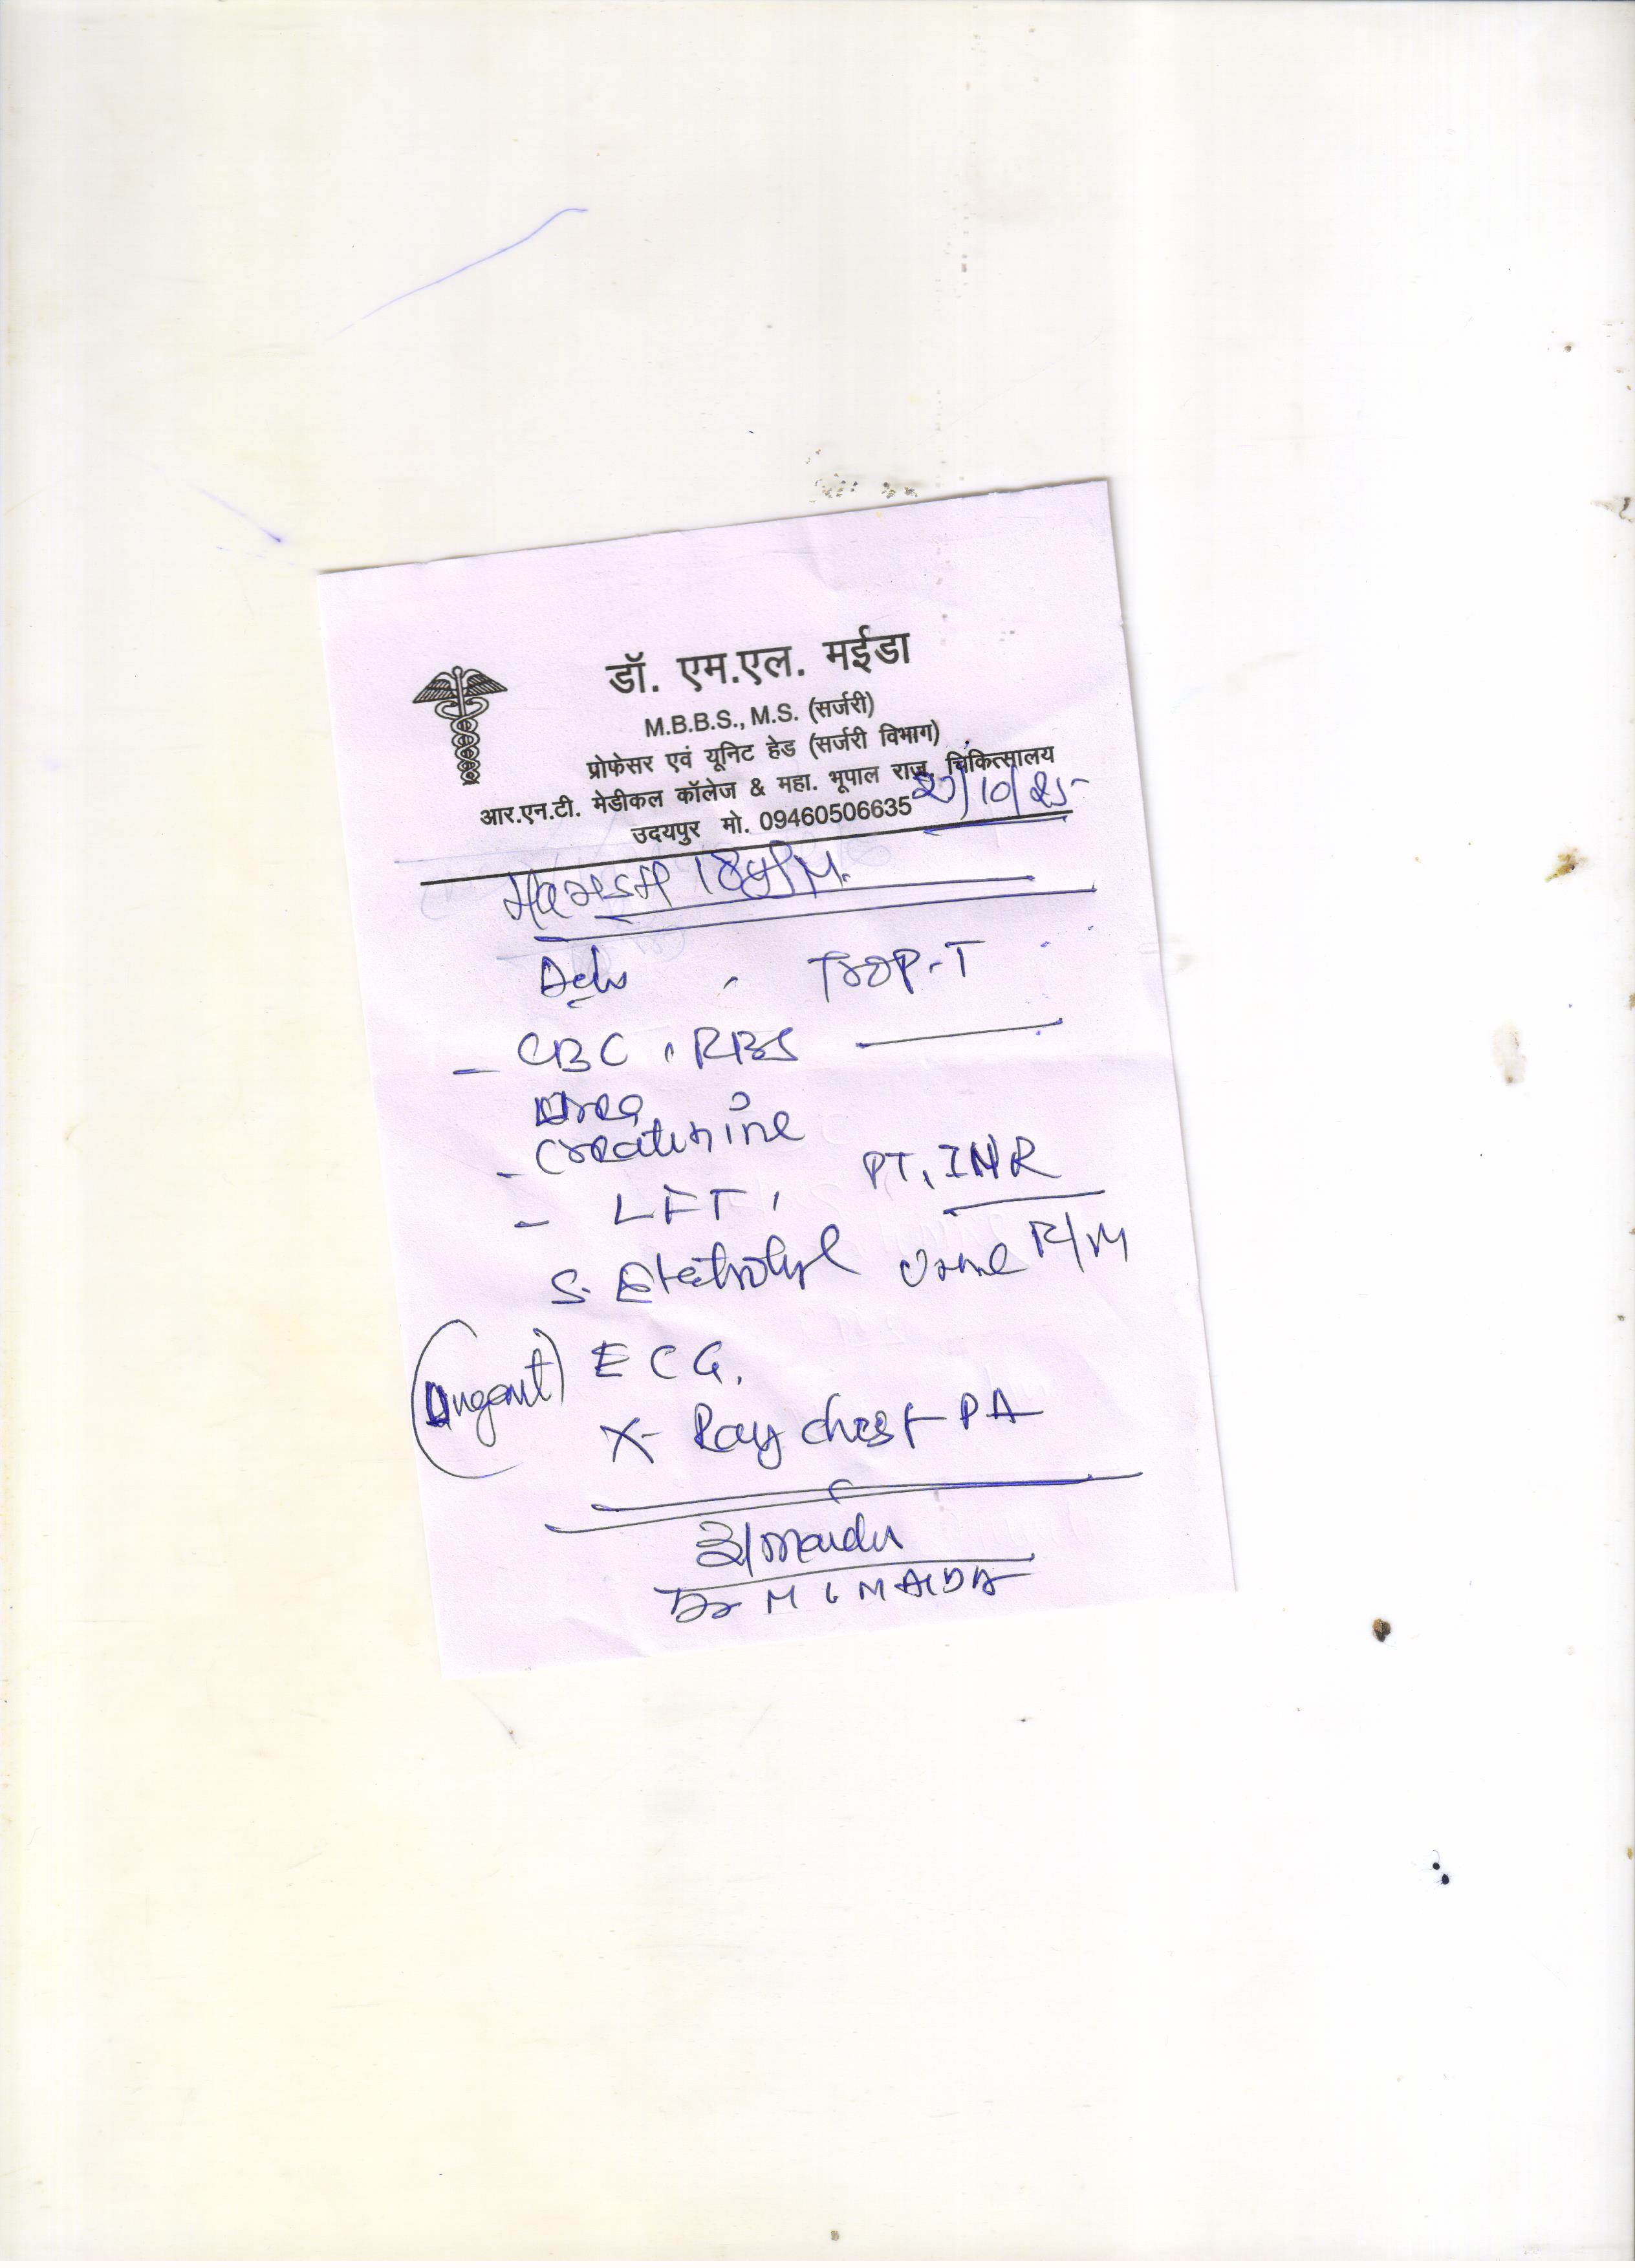 डॉ. एम.एल. मईडा
M.B.B.S., M.S. (सर्जरी)
प्रोफेसर एवं यूनिट हेड (सर्जरी विभाग)
आर.एन.टी. मेडीकल कॉलेज & महा. भूपाल राज. चिकित्सालय
उदयपुर मो. 09460506635
/10/25
Trop-T
- CBC, RBS
Urea
- Creatinine
- LFT, PT, INR
S. Eletrolyl Urine R/M
(Urgent) ECG.
X-Ray chest PA
Dr M L MAIDA